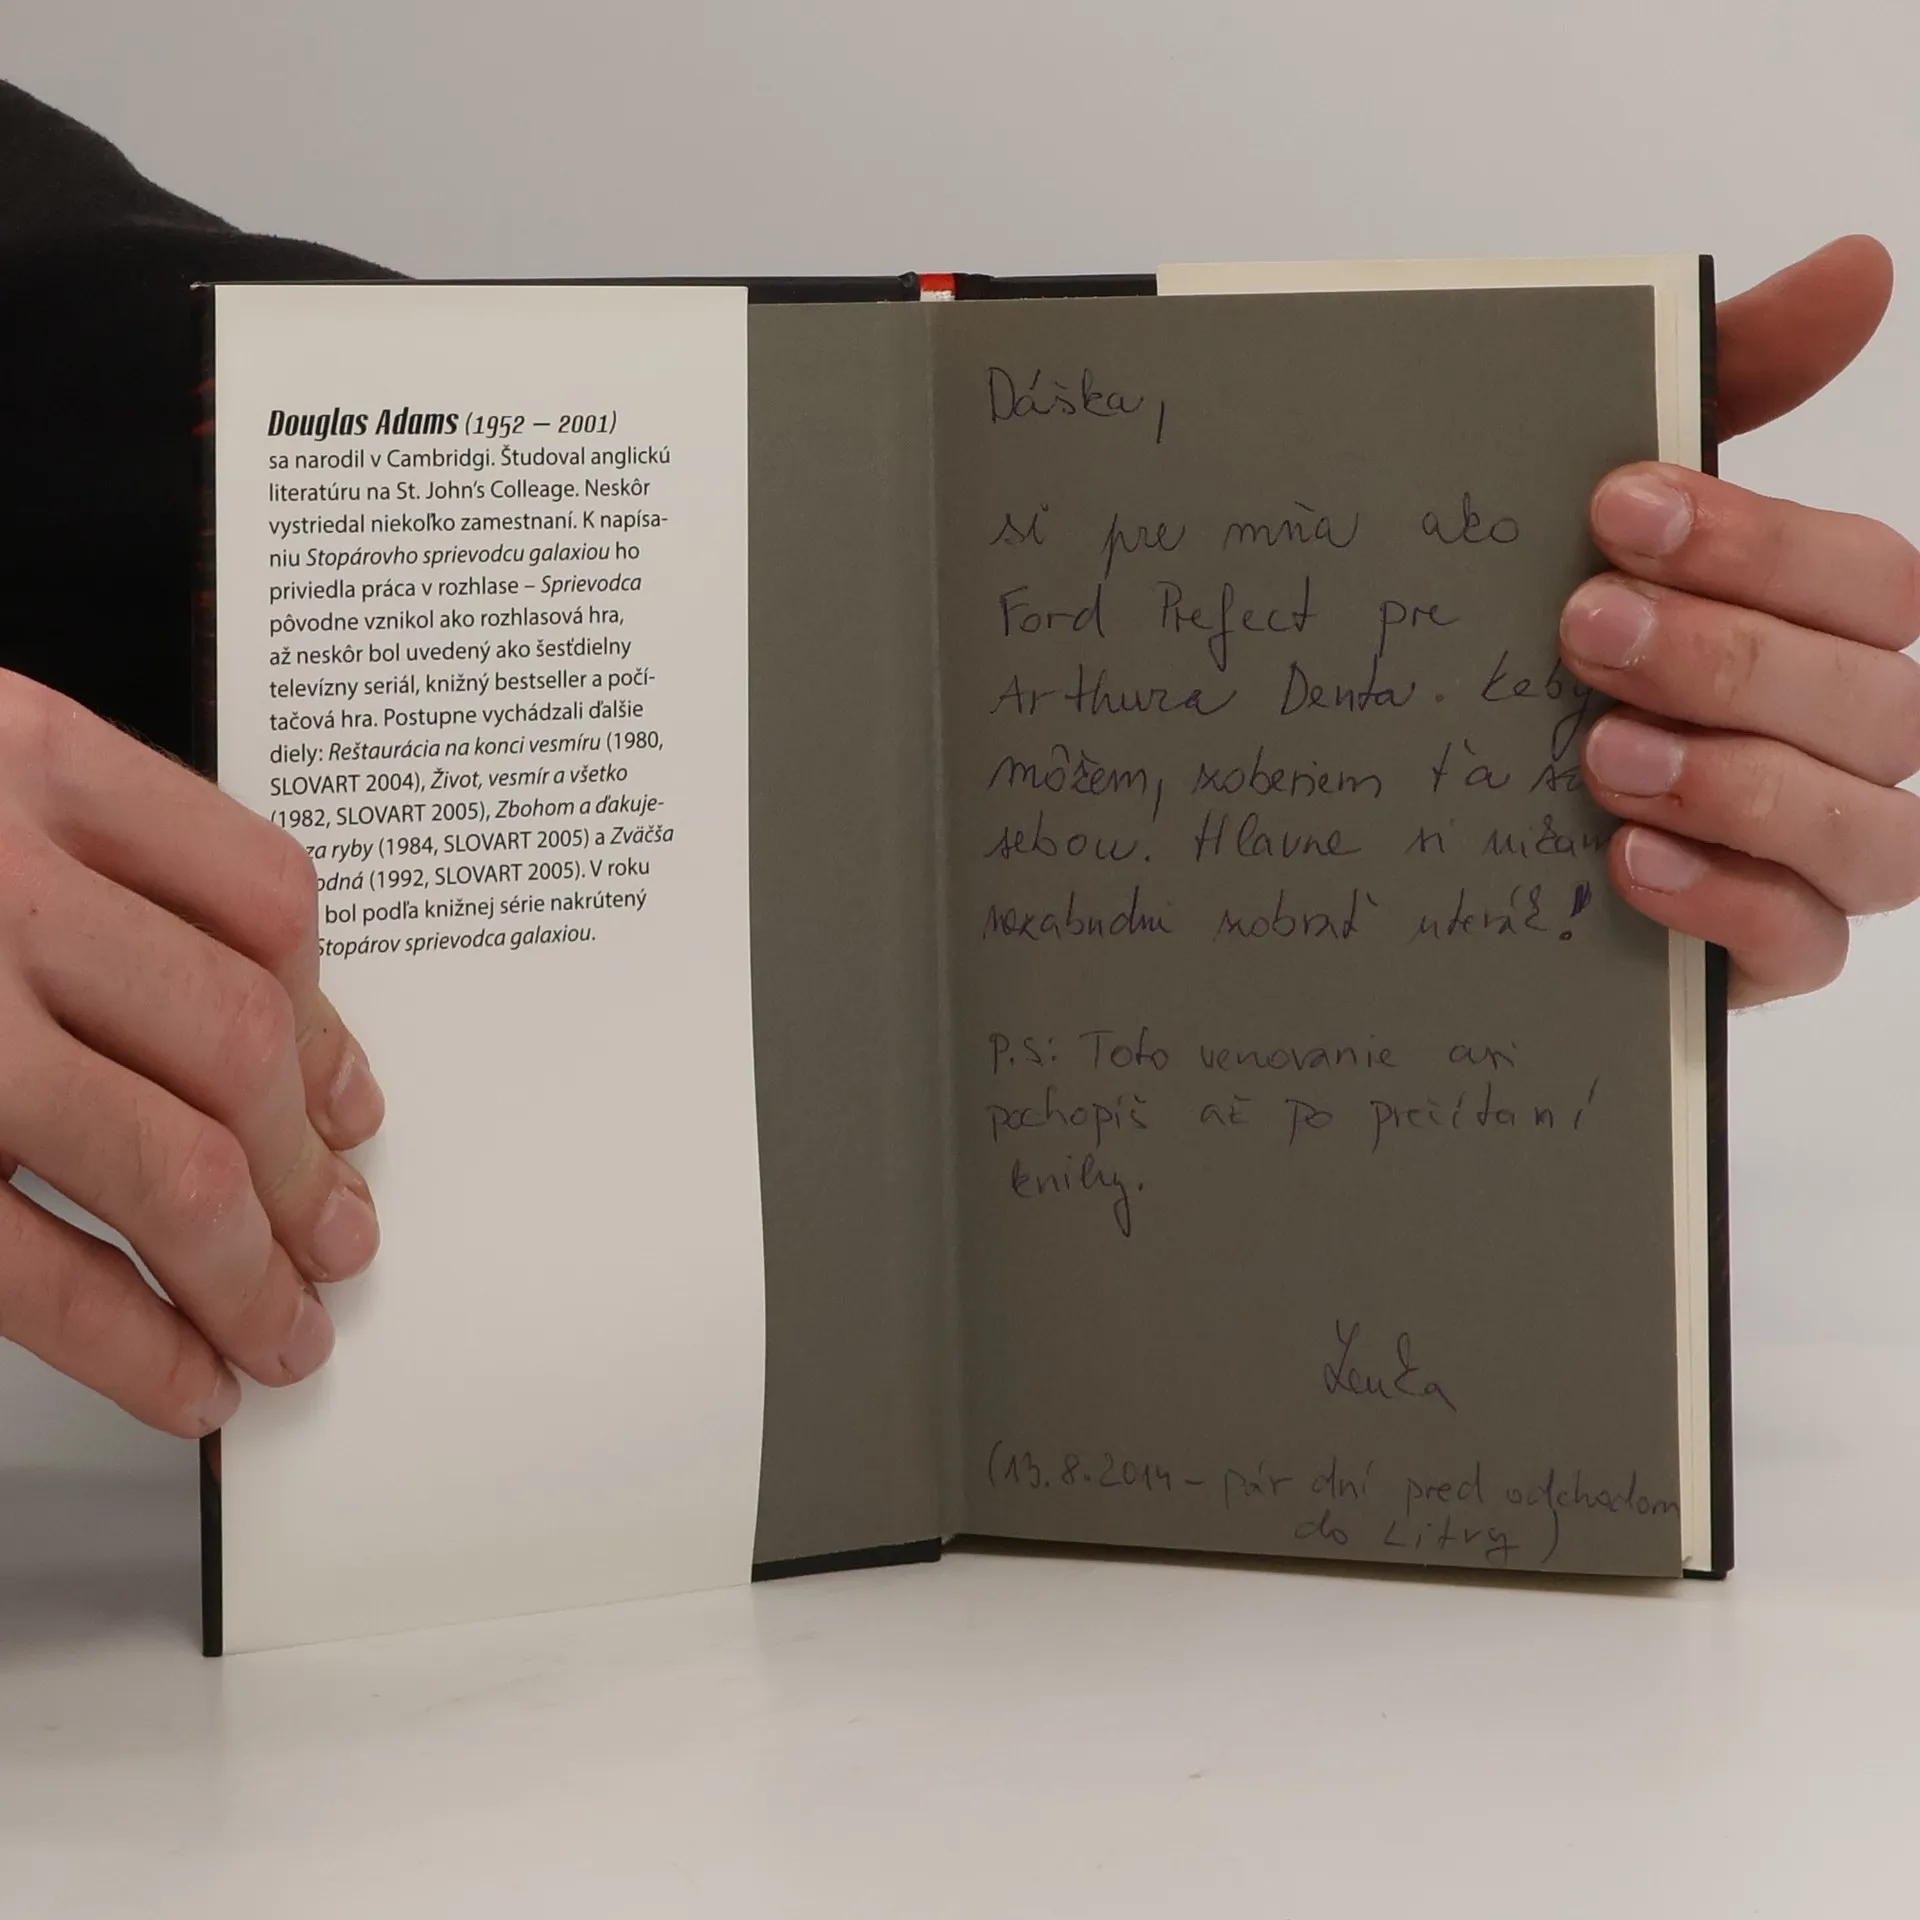 Douglas Adams (1952 – 2001)
sa narodil v Cambridgi. Študoval anglickú
literatúru na St. John's Colleage. Neskôr
vystriedal niekoľko zamestnaní. K napísa-
niu Stopárovho sprievodcu galaxiou ho
priviedla práca v rozhlase – Sprievodca
pôvodne vznikol ako rozhlasová hra,
až neskôr bol uvedený ako šesťdielny
televízny seriál, knižný bestseller a počí-
tačová hra. Postupne vychádzali ďalšie
diely: Reštaurácia na konci vesmíru (1980,
SLOVART 2004), Život, vesmír a všetko
(1982, SLOVART 2005), Zbohom a ďakuje-
za ryby (1984, SLOVART 2005) a Zväčša
odná (1992, SLOVART 2005). V roku
bol podľa knižnej série nakrútený
Stopárov sprievodca galaxiou.
Dáška,
si pre mňa ako
Ford Prefect pre
Arthura Denta. Keby
môžem, zoberiem ťa so
sebou. Hlavne si
nezabudni zobrať uterák!
P.S: Toto venovanie asi
pochopíš až po prečítaní
knihy.
Lenka
(13.8.2014 – pár dní pred odchodom
do Litvy)